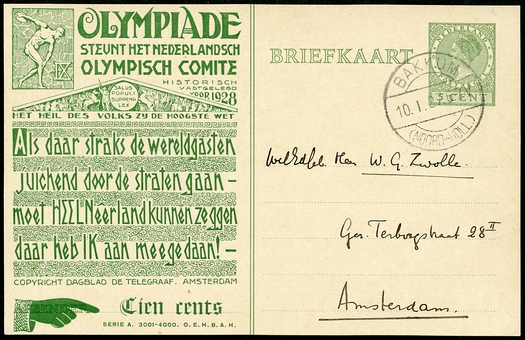 OLYMPIADE
STEUNT HET NEDERLANDSCH
OLYMPISCH COMITE
HISTORISCH
VASTGELEGD
VOOR 1928
IX
SALUS
POPULI
SUPREMA
LEX
HET HEIL DES VOLKS ZY DE HOOGSTE WET
Als daar straks de wereldgasten
juichend door de straten gaan —
moet HEEL Neerland kunnen zeggen
daar heb IK aan meegedaan! —
COPYRIGHT DAGBLAD DE TELEGRAAF. AMSTERDAM
Tien cents
SERIE A. 3001-4000. O.E.H.B.A.H.
BRIEFKAART
5 CENT
BAKKUM
10.1.
(NOORD-HOLL.)
WelEdGeb. Heer W. G. Zwolle.
Ger. Terborgstraat 28 II
Amsterdam.